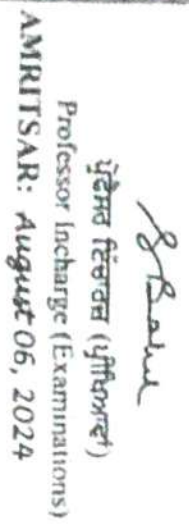 ਪ੍ਰੋਫੈਸਰ ਇੰਚਾਰਜ (ਪ੍ਰੀਖਿਆਵਾਂ)
Professor Incharge (Examinations)
AMRITSAR: August 06, 2024